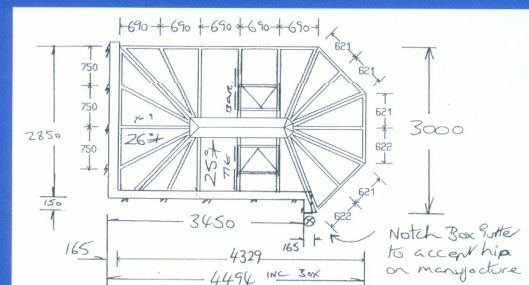 690 690 690 690 690
621
621
750
750
750
2850
150
BAR
26°
25°
TIE
621
622
621
622
3000
3450
165
165
4329
4494 INC BOX
Notch Box Gutter
to accept hip
on manufacture